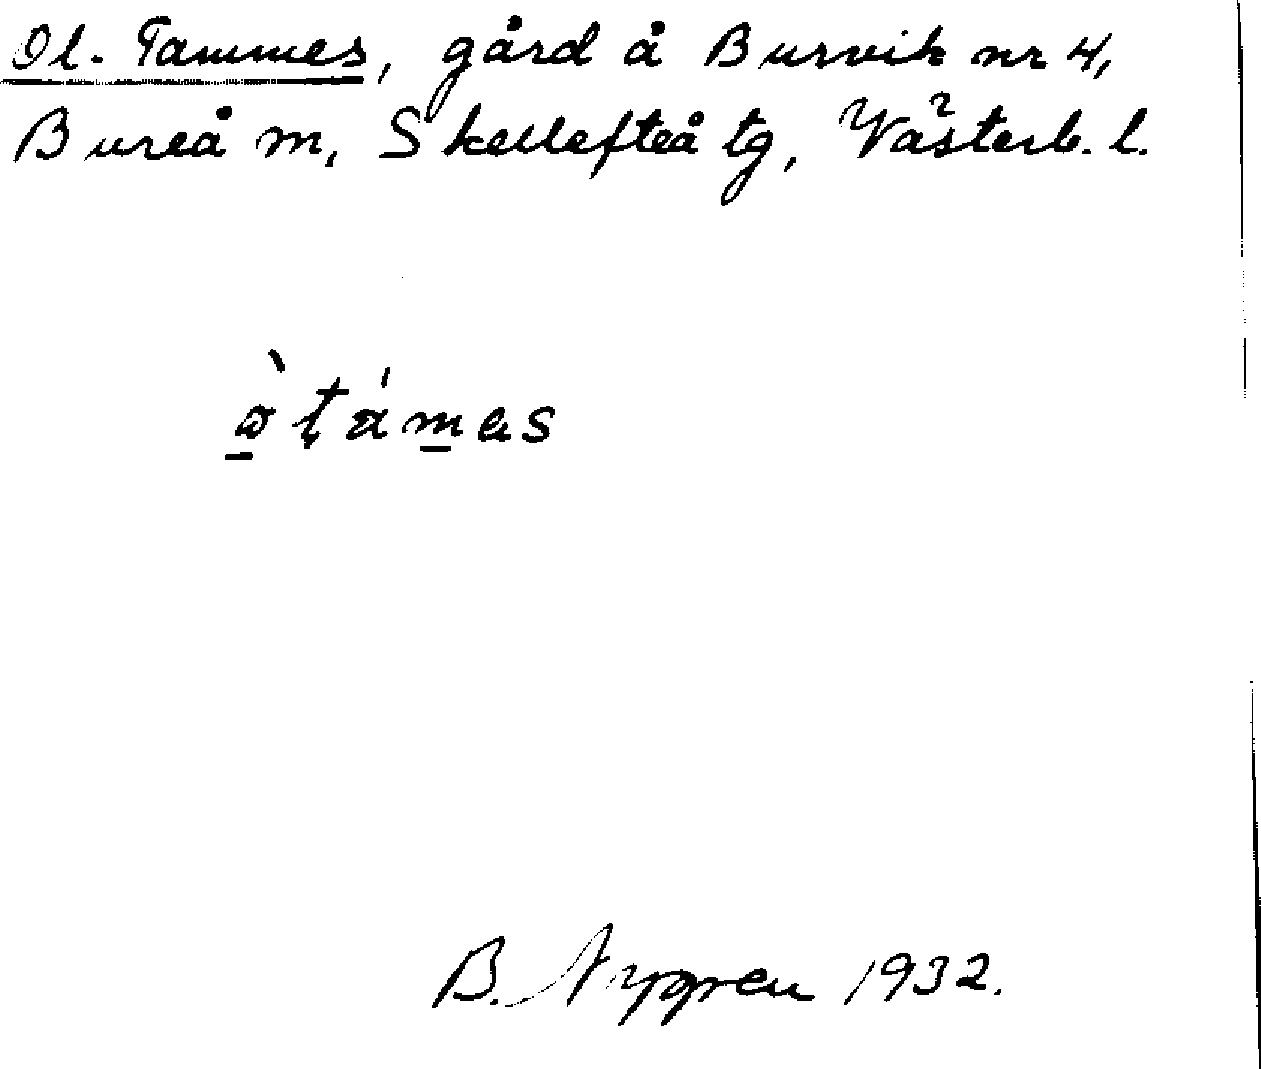 Ol. Tammes, gård å Burvik nr 4,
Bureå m, Skellefteå tg, Västerb. l.
B. Nygren 1932.